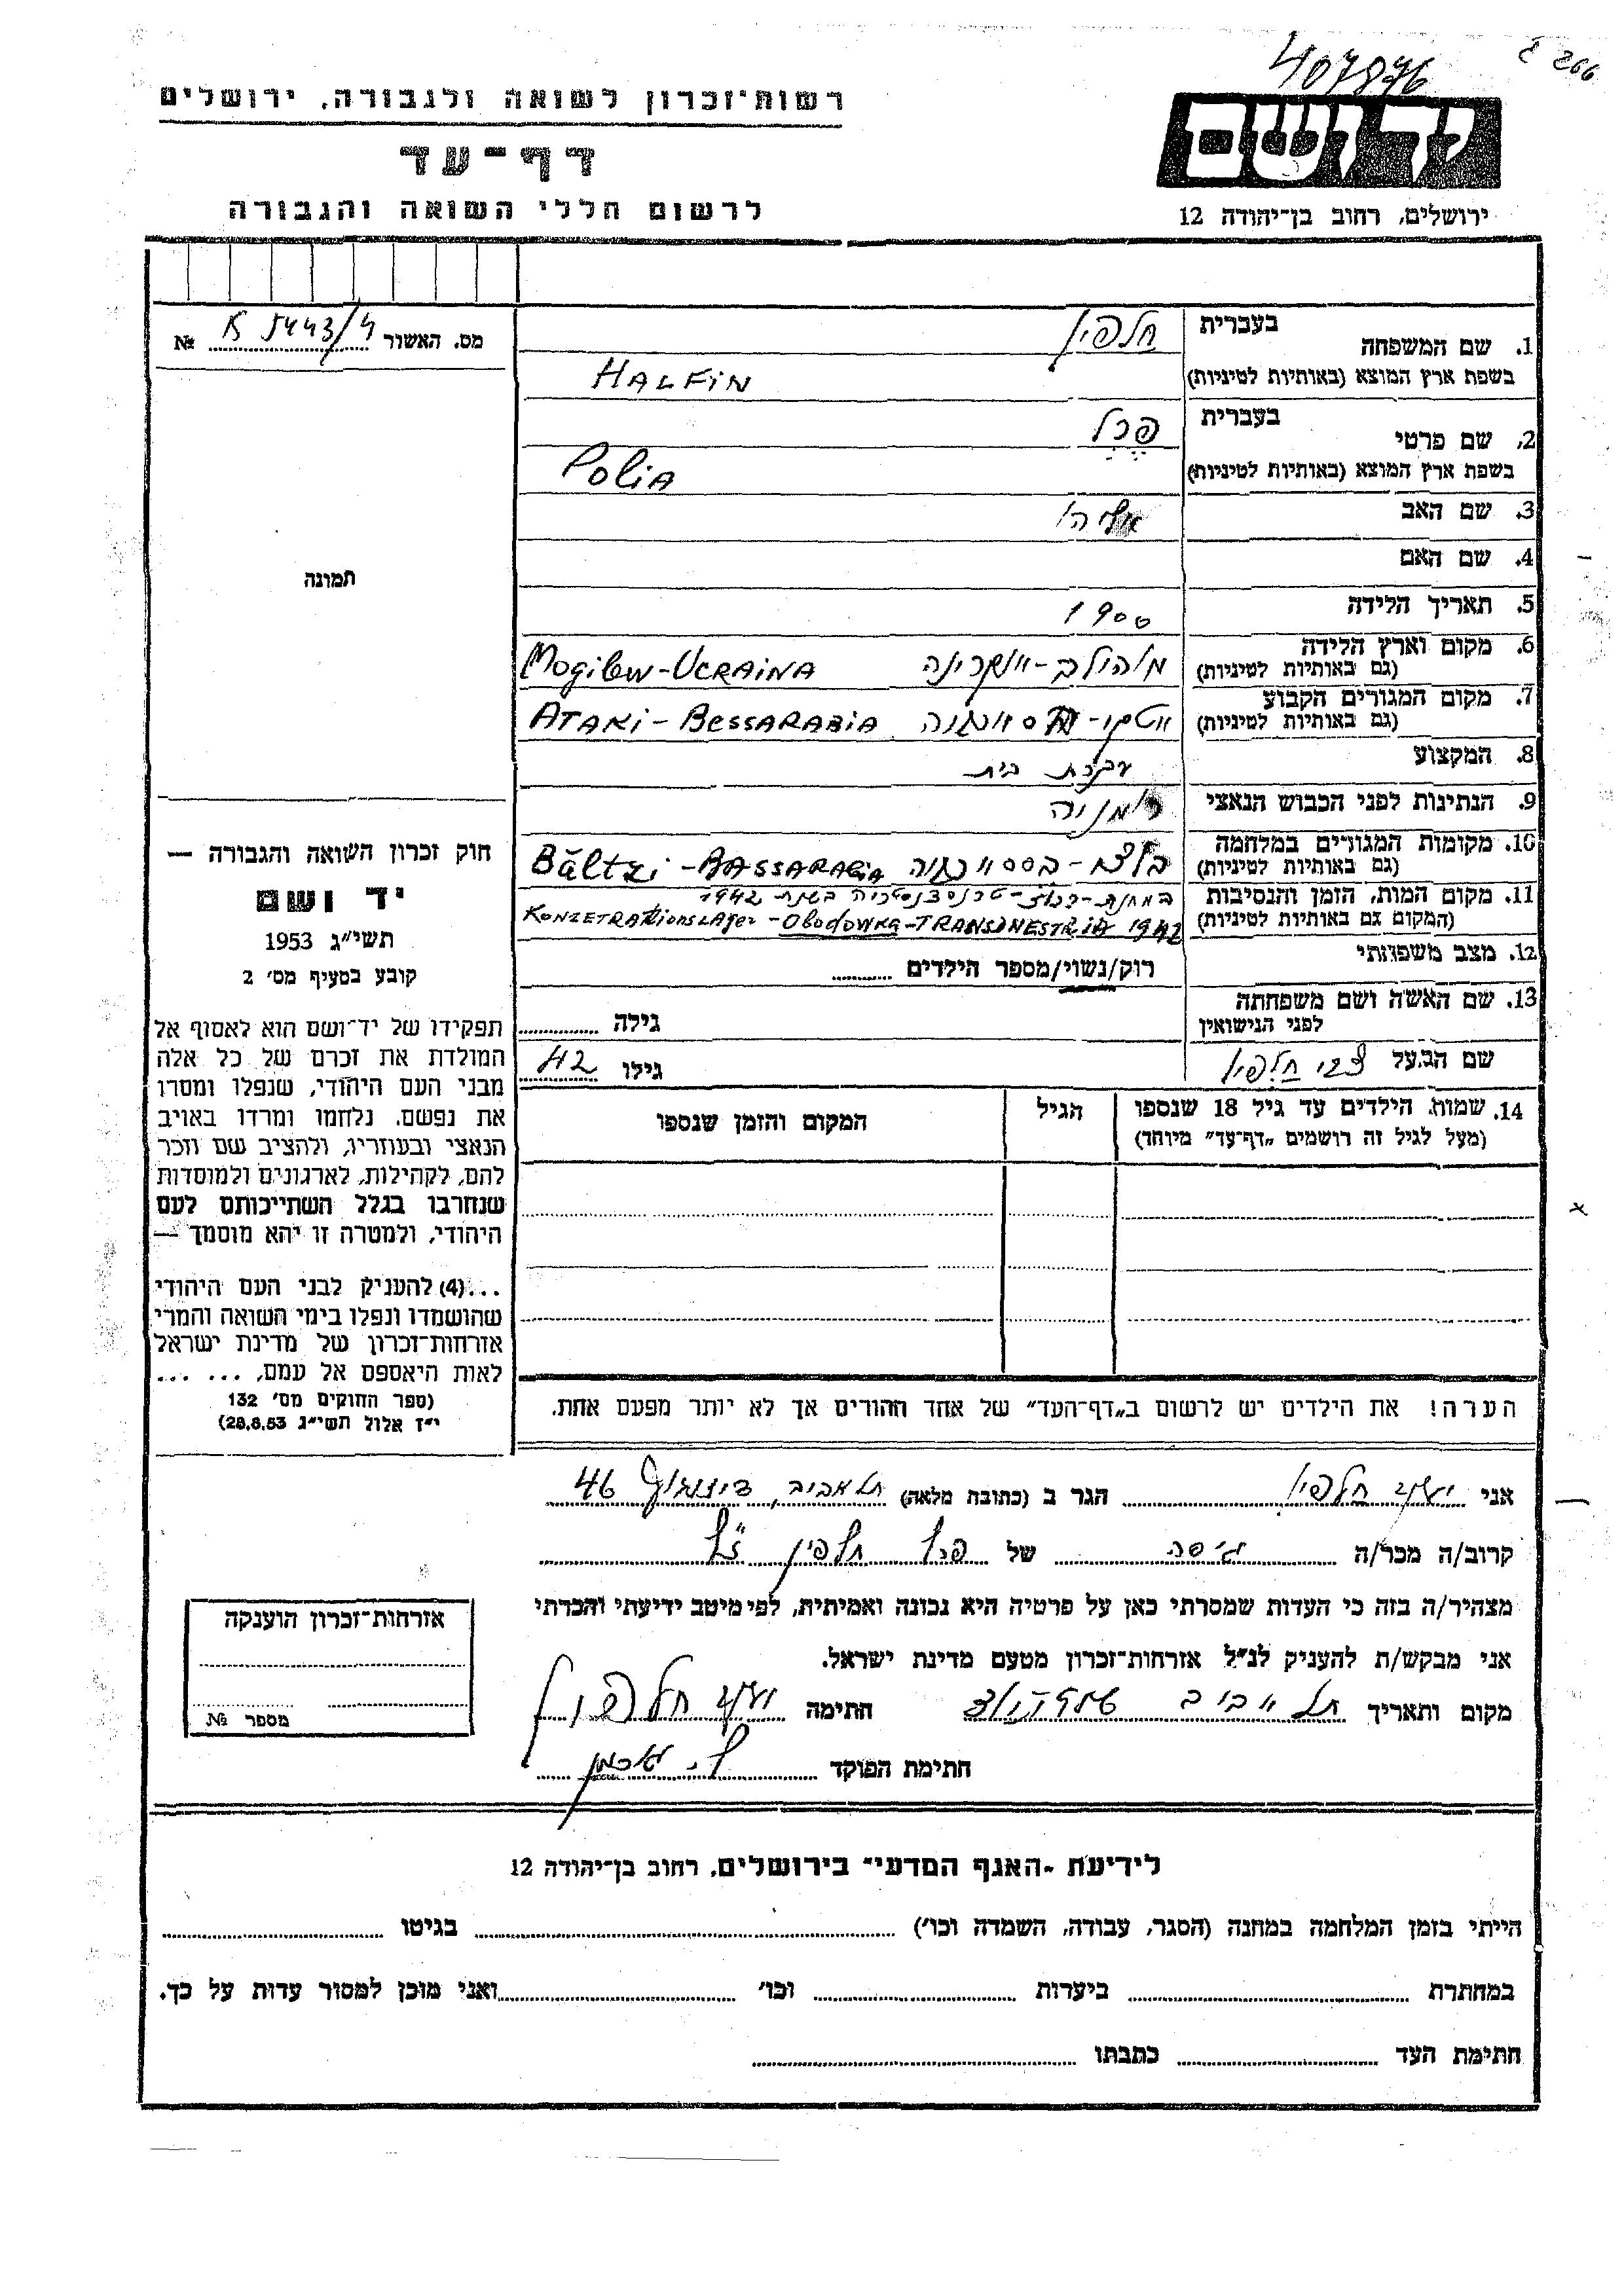 407876
266
רשות-זכרון לשואה ולגבורה, ירושלים
דף-עד
לרשום חללי השואה והגבורה
יד ושם
ירושלים, רחוב בן-יהודה 12
מס. האשור № K 5443/4
תמונה
1. שם המשפחה בעברית חלפין
בשפת ארץ המוצא (באותיות לטיניות) HALFiN
2. שם פרטי בעברית פרל
בשפת ארץ המוצא (באותיות לטיניות) POLiA
3. שם האב
4. שם האם
5. תאריך הלידה 1900
6. מקום וארץ הלידה (גם באותיות לטיניות) מוהולב-אוקרינה Mogilew-UCRAiNA
7. מקום המגורים הקבוע (גם באותיות לטיניות) ATAKi-BESSARABiA
8. המקצוע עקרת בית
9. הנתינות לפני הכבוש הנאצי רומניה
10. מקומות המגורים במלחמה (גם באותיות לטיניות) Băltzi-BASSARABiA
11. מקום המות, הזמן והנסיבות בשנת 1942
(המקום גם באותיות לטיניות) KONZETRAtionslager-Obodowka-TRANSINESTRiA 1942
12. מצב משפחתי רוק/נשוי/מספר הילדים
13. שם האשה ושם משפחתה לפני הנישואין גילה
שם הבעל צבי חלפין גילו 42
14. שמות הילדים עד גיל 18 שנספו
(מעל לגיל זה רושמים „דף-עד” מיוחד)
הגיל
המקום והזמן שנספו
הערה! את הילדים יש לרשום ב„דף-העד” של אחד ההורים אך לא יותר מפעם אחת.
חוק זכרון השואה והגבורה —
יד ושם
תשי״ג 1953
קובע בסעיף מס׳ 2
תפקידו של יד-ושם הוא לאסוף אל
המולדת את זכרם של כל אלה
מבני העם היהודי, שנפלו ומסרו
את נפשם. נלחמו ומרדו באויב
הנאצי ובעוזריו, ולהציב שם וזכר
להם, לקהילות, לארגונים ולמוסדות
שנחרבו בגלל השתייכותם לעם
היהודי, ולמטרה זו יהא מוסמך —
...(4) להעניק לבני העם היהודי
שהושמדו ונפלו בימי השואה והמרי
אזרחות-זכרון של מדינת ישראל
לאות היאספם אל עמם, ... ...
(ספר החוקים מס׳ 132
י״ז אלול תשי״ג 28.8.53)
אני יעקב חלפין הגר ב (כתובת מלאה) תל אביב, דיזנגוף 46
קרוב/ה מכר/ה גיסה של פרל חלפין ז״ל
מצהיר/ה בזה כי העדות שמסרתי כאן על פרטיה היא נכונה ואמיתית, לפי מיטב ידיעתי והכרתי
אני מבקש/ת להעניק לנ״ל אזרחות-זכרון מטעם מדינת ישראל.
מקום ותאריך תל אביב חתימה יעקב חלפין
חתימת הפוקד
אזרחות-זכרון הוענקה
מספר №
לידיעת -האגף המדעי״ בירושלים, רחוב בן-יהודה 12
הייתי בזמן המלחמה במחנה (הסגר, עבודה, השמדה וכו׳) בגיטו
במחתרת ביערות וכו׳ ואני מוכן למסור עדות על כך.
חתימת העד כתבתו